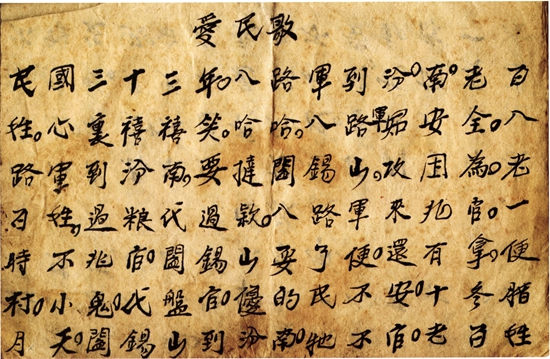 愛民歌
民國三十三年。八路軍到汾。南。老百
姓。心裏禧禧笑。哈哈。八路軍归安全。八
路軍到汾南。要撻閻錫山。攻围為。老
百姓。過粮代過欵。八路軍來兆官。一
時不兆官。閻錫山要了便。還有拿。便
村。小鬼。代盤官。優的民不安。十冬腊
月天。閻錫山到汾南。牠不官。老百姓